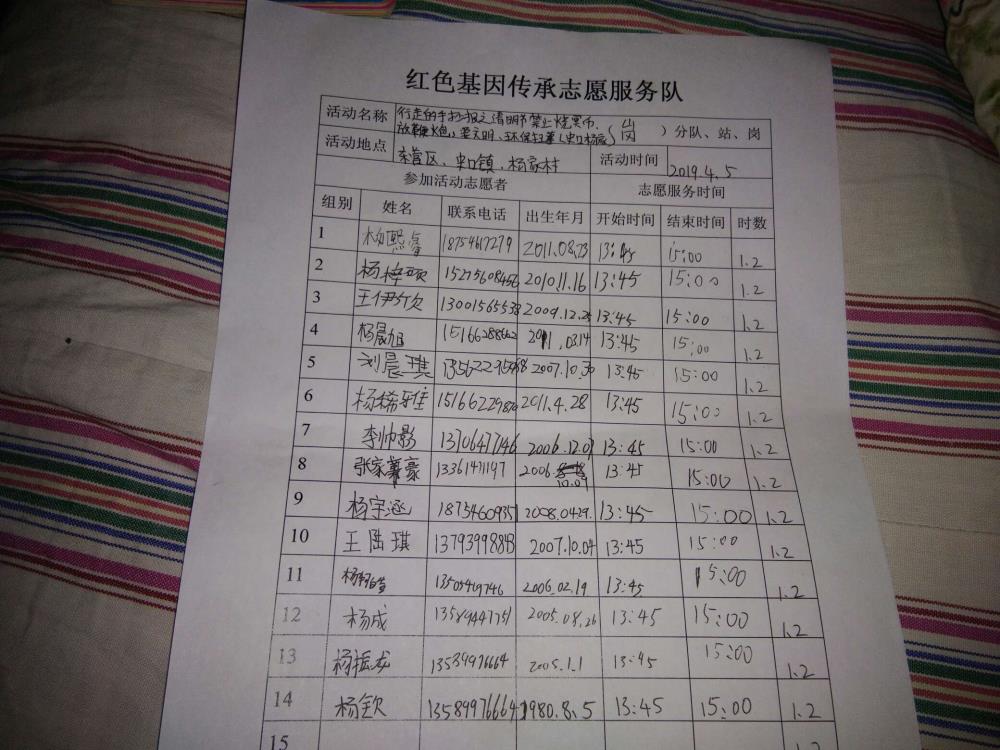 红色基因传承志愿服务队
活动名称 行走的手抄报之清明节禁止烧冥币、
放鞭火包，要文明、环保扫墓（史口杨家 岗 ）分队、站、岗
活动地点 东营区、史口镇、杨家村 活动时间 2019.4.5
参加活动志愿者 志愿服务时间
组别 姓名 联系电话 出生年月 开始时间 结束时间 时数
1 杨熙 18754617279 2011.08.23 13:45 15:00 1.2
2 杨梓 15275608456 2010.11.16 13:45 15:00 1.2
3 王伊 13001565538 2009.12.25 13:45 15:00 1.2
4 杨晨旭 15166288662 2011.0314 13:45 15:00 1.2
5 刘晨琪 2007.10.30 13:45 15:00 1.2
6 杨稀雅 2011.4.28 13:45 15:00 1.2
7 李帅影 2006.12.01 13:45 15:00 1.2
8 张家豪 13361471197 2006. 10.09 13:45 15:00 1.2
9 杨宇涵 2008.0429. 13:45 15:00 1.2
10 王陆琪 13793998843 2007.10.04 13:45 15:00 1.2
11 2006.02.19 13:45 15:00 1.2
12 杨成 2005.08.26 13:45 15:00 1.2
13 杨振龙 13589976664 2005.1.1 13:45 15:00 1.2
14 杨钦 13589976664 1980.8.5 13:45 15:00 1.2
15